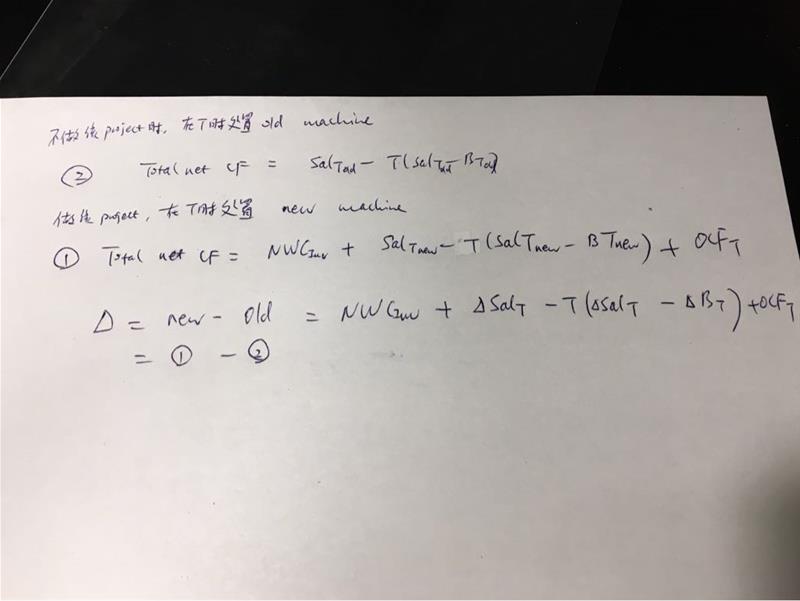 不做该project时, 在T时处置 old machine
② Total net CF = SalTold - T(SalTold - BTold)
做该project, 在T时处置 new machine
① Total net CF = NWCInv + SalTnew - T(SalTnew - BTnew) + OCFT
Δ = new - old = NWCInv + ΔSalT - T(ΔSalT - ΔBT) + OCFT
= ① - ②